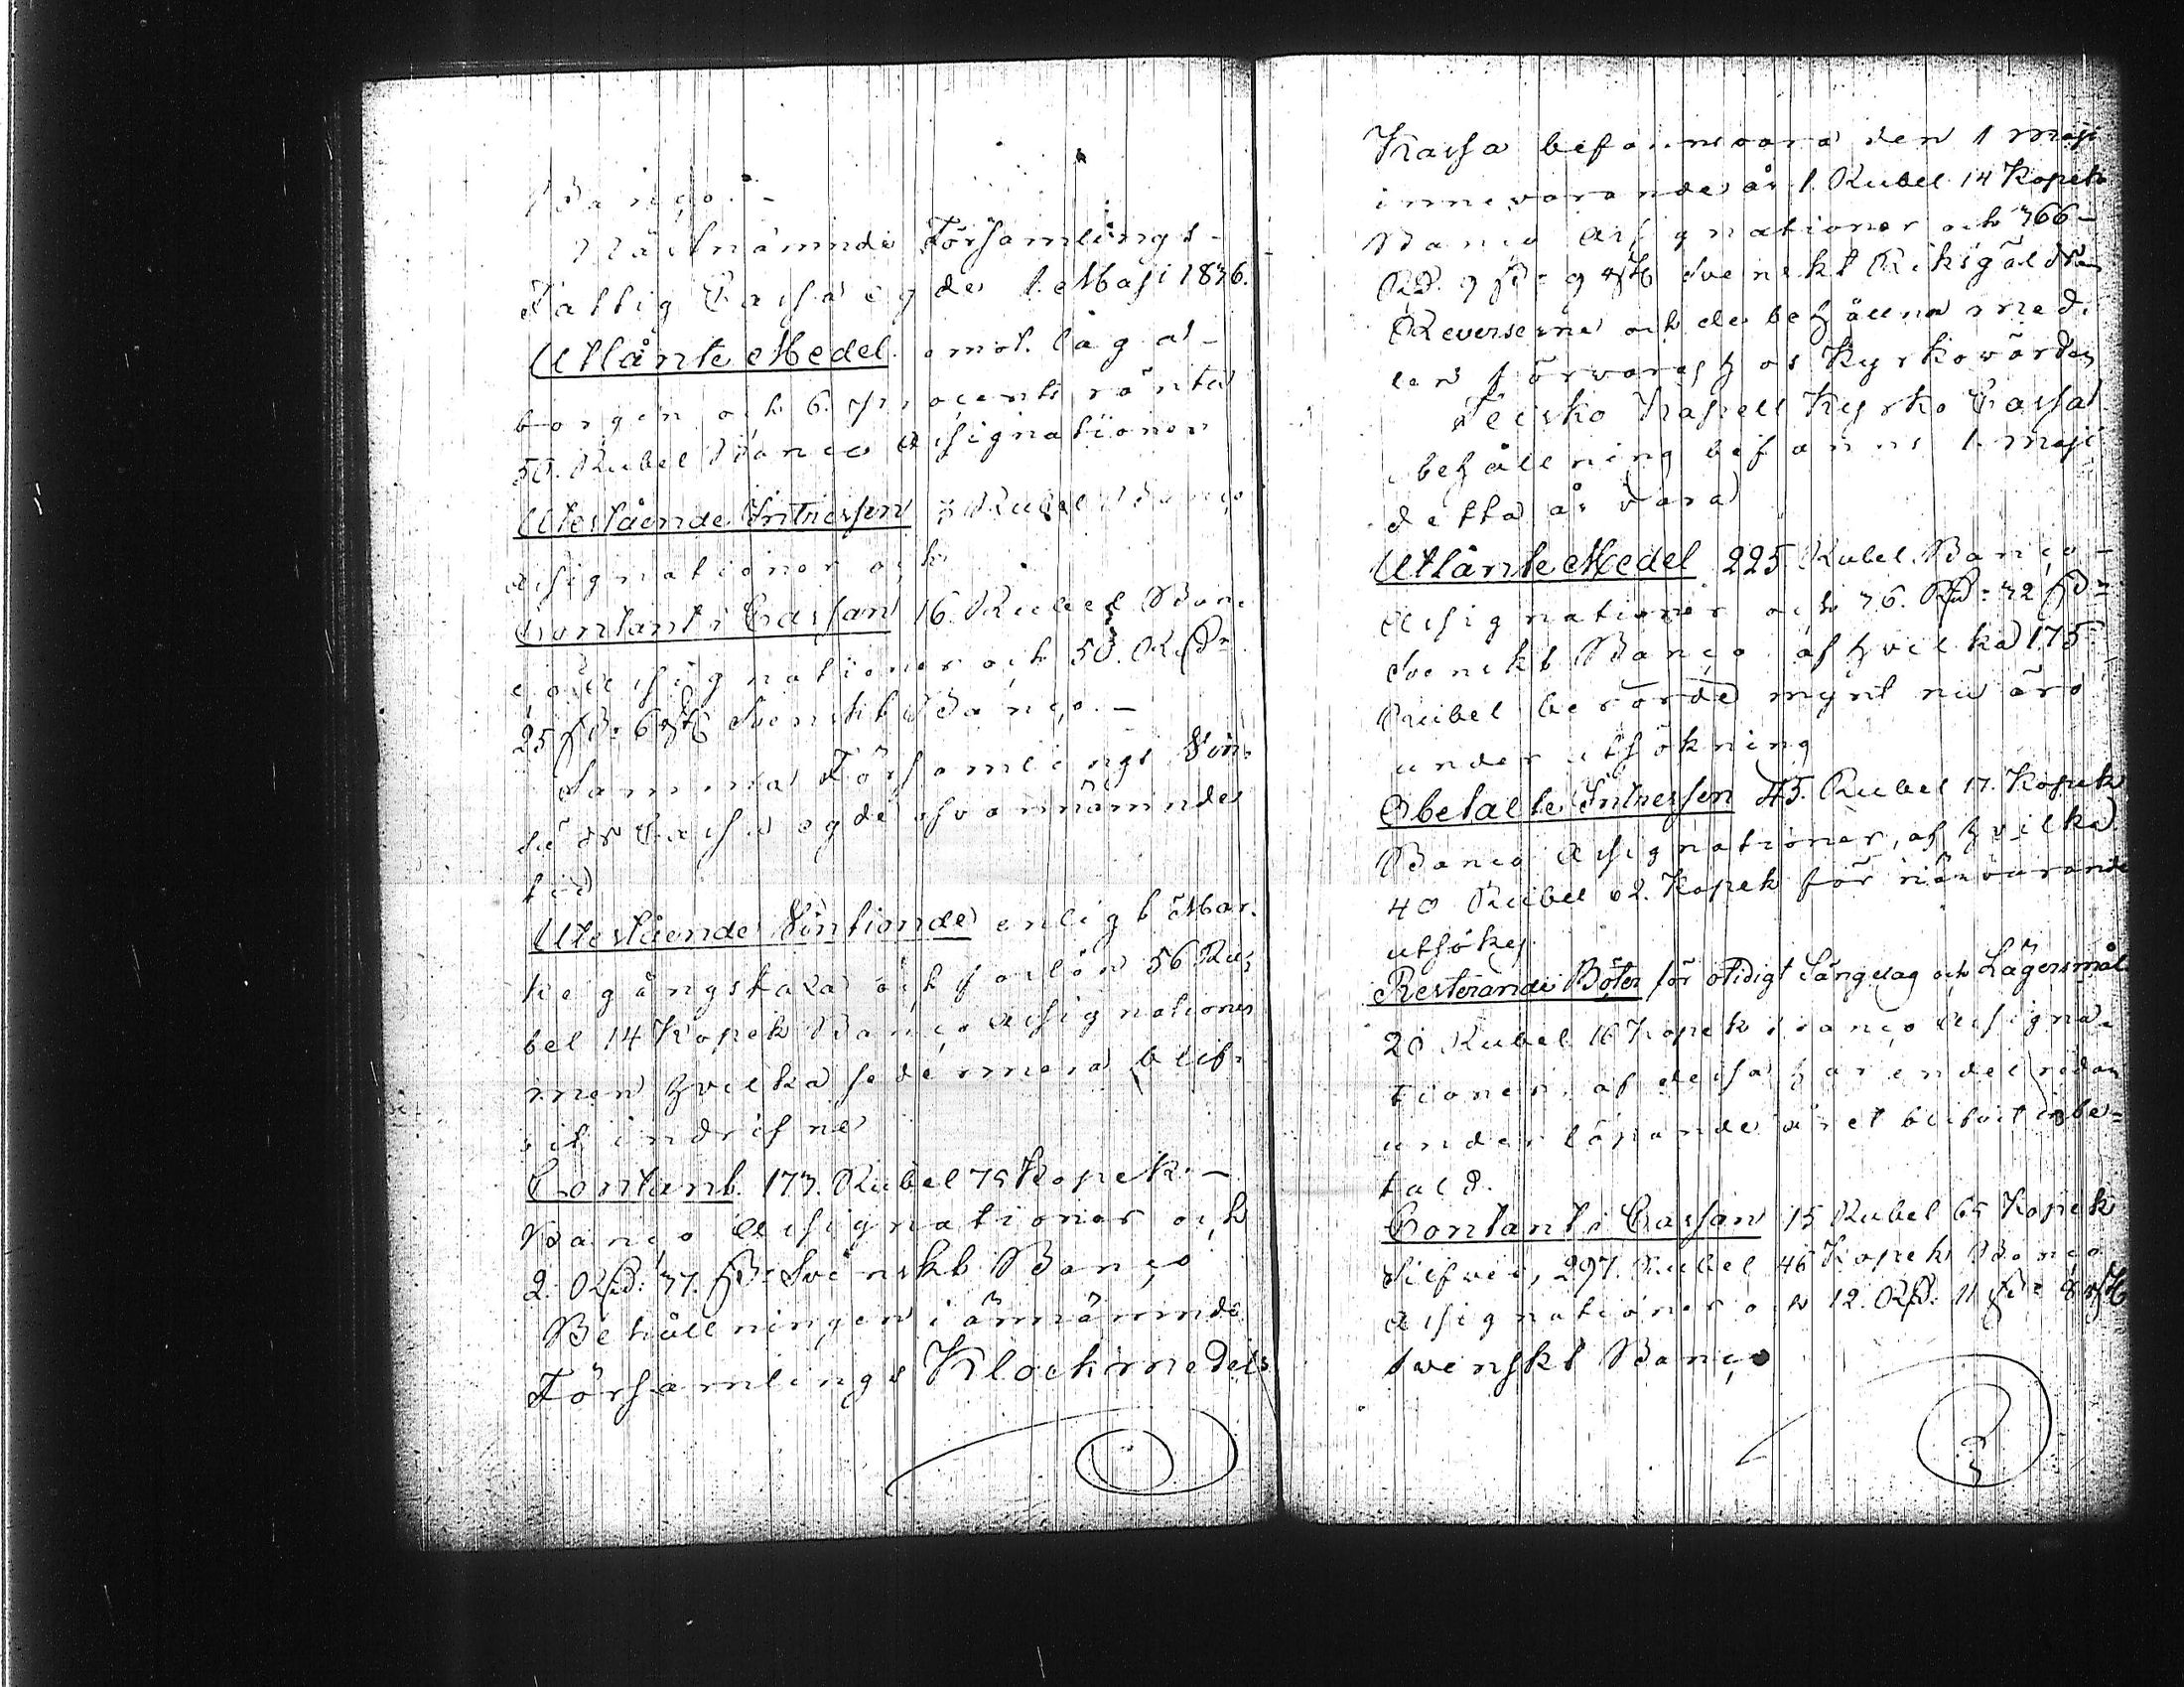 Banco. -
Nästnämnde Församlings-
Fattig Cassa egde 1. Maji 1836.
Utlånte Medel emot laga
borgen och 6. procents ränta
50. Rubel Banco Assignationer
Utestående Intressen 3 Rubel Banco
Assignationer och
Contant i Cassan 16. Rubel Ban-
co Assignationer och 50. RD:
25 s: 6 rst Svenskt Banco. -
Samma Församlings
Cassa egde ofvannämnde
tid
Utestående enligt Mar-
kegångstaxa och 56 Ru-
bel 14 Kopek Banco Assignationer
men hvilka sedermera blif-
vit indrifne
Contant. 173. Rubel 75 Kopek -
Banco Assignationer och
2. RD: 37. s: Svenskt Banco
Behållningen i ännämnde
Församlings Klockmedels
Kassa befanns vara den 1 Maji
innevarande år 1. Rubel 14 Kopek
Banco Assignationer och 366-
RD. 9 s: 9 rst Svenskt Riksgälds
Reverserne och de behållna med-
len förvaras hos Kyrkovärden
Kapell Kyrko Cassa
behållning befanns 1. Maji
detta år vara
Utlånte Medel 225. Rubel. Banco -
Assignationer och 36. RD: 32 s:
Svenskt Banco af hvilka 175
Rubel berörde mynt nu äro
under utsökning
Obetalte Intressen 45. Rubel 17. Kopek
Banco Assignationer, af hvilka
40 Rubel 02. Kopek för närvarande
utsökes.
Resterande Böter för otidigt Sängelag och Lägersmål
20 Rubel 16 Kopek Banco Assigna-
tioner. af dessa har en del redan
under löpande året blifvit inbe-
tald.
Contant i Cassan 15 Rubel 65 Kopek
Silfver, 297. Rubel 46 Kopek Banco
Assignationer och 12. RD: 11 s: 8 rst
Swenskt Banco